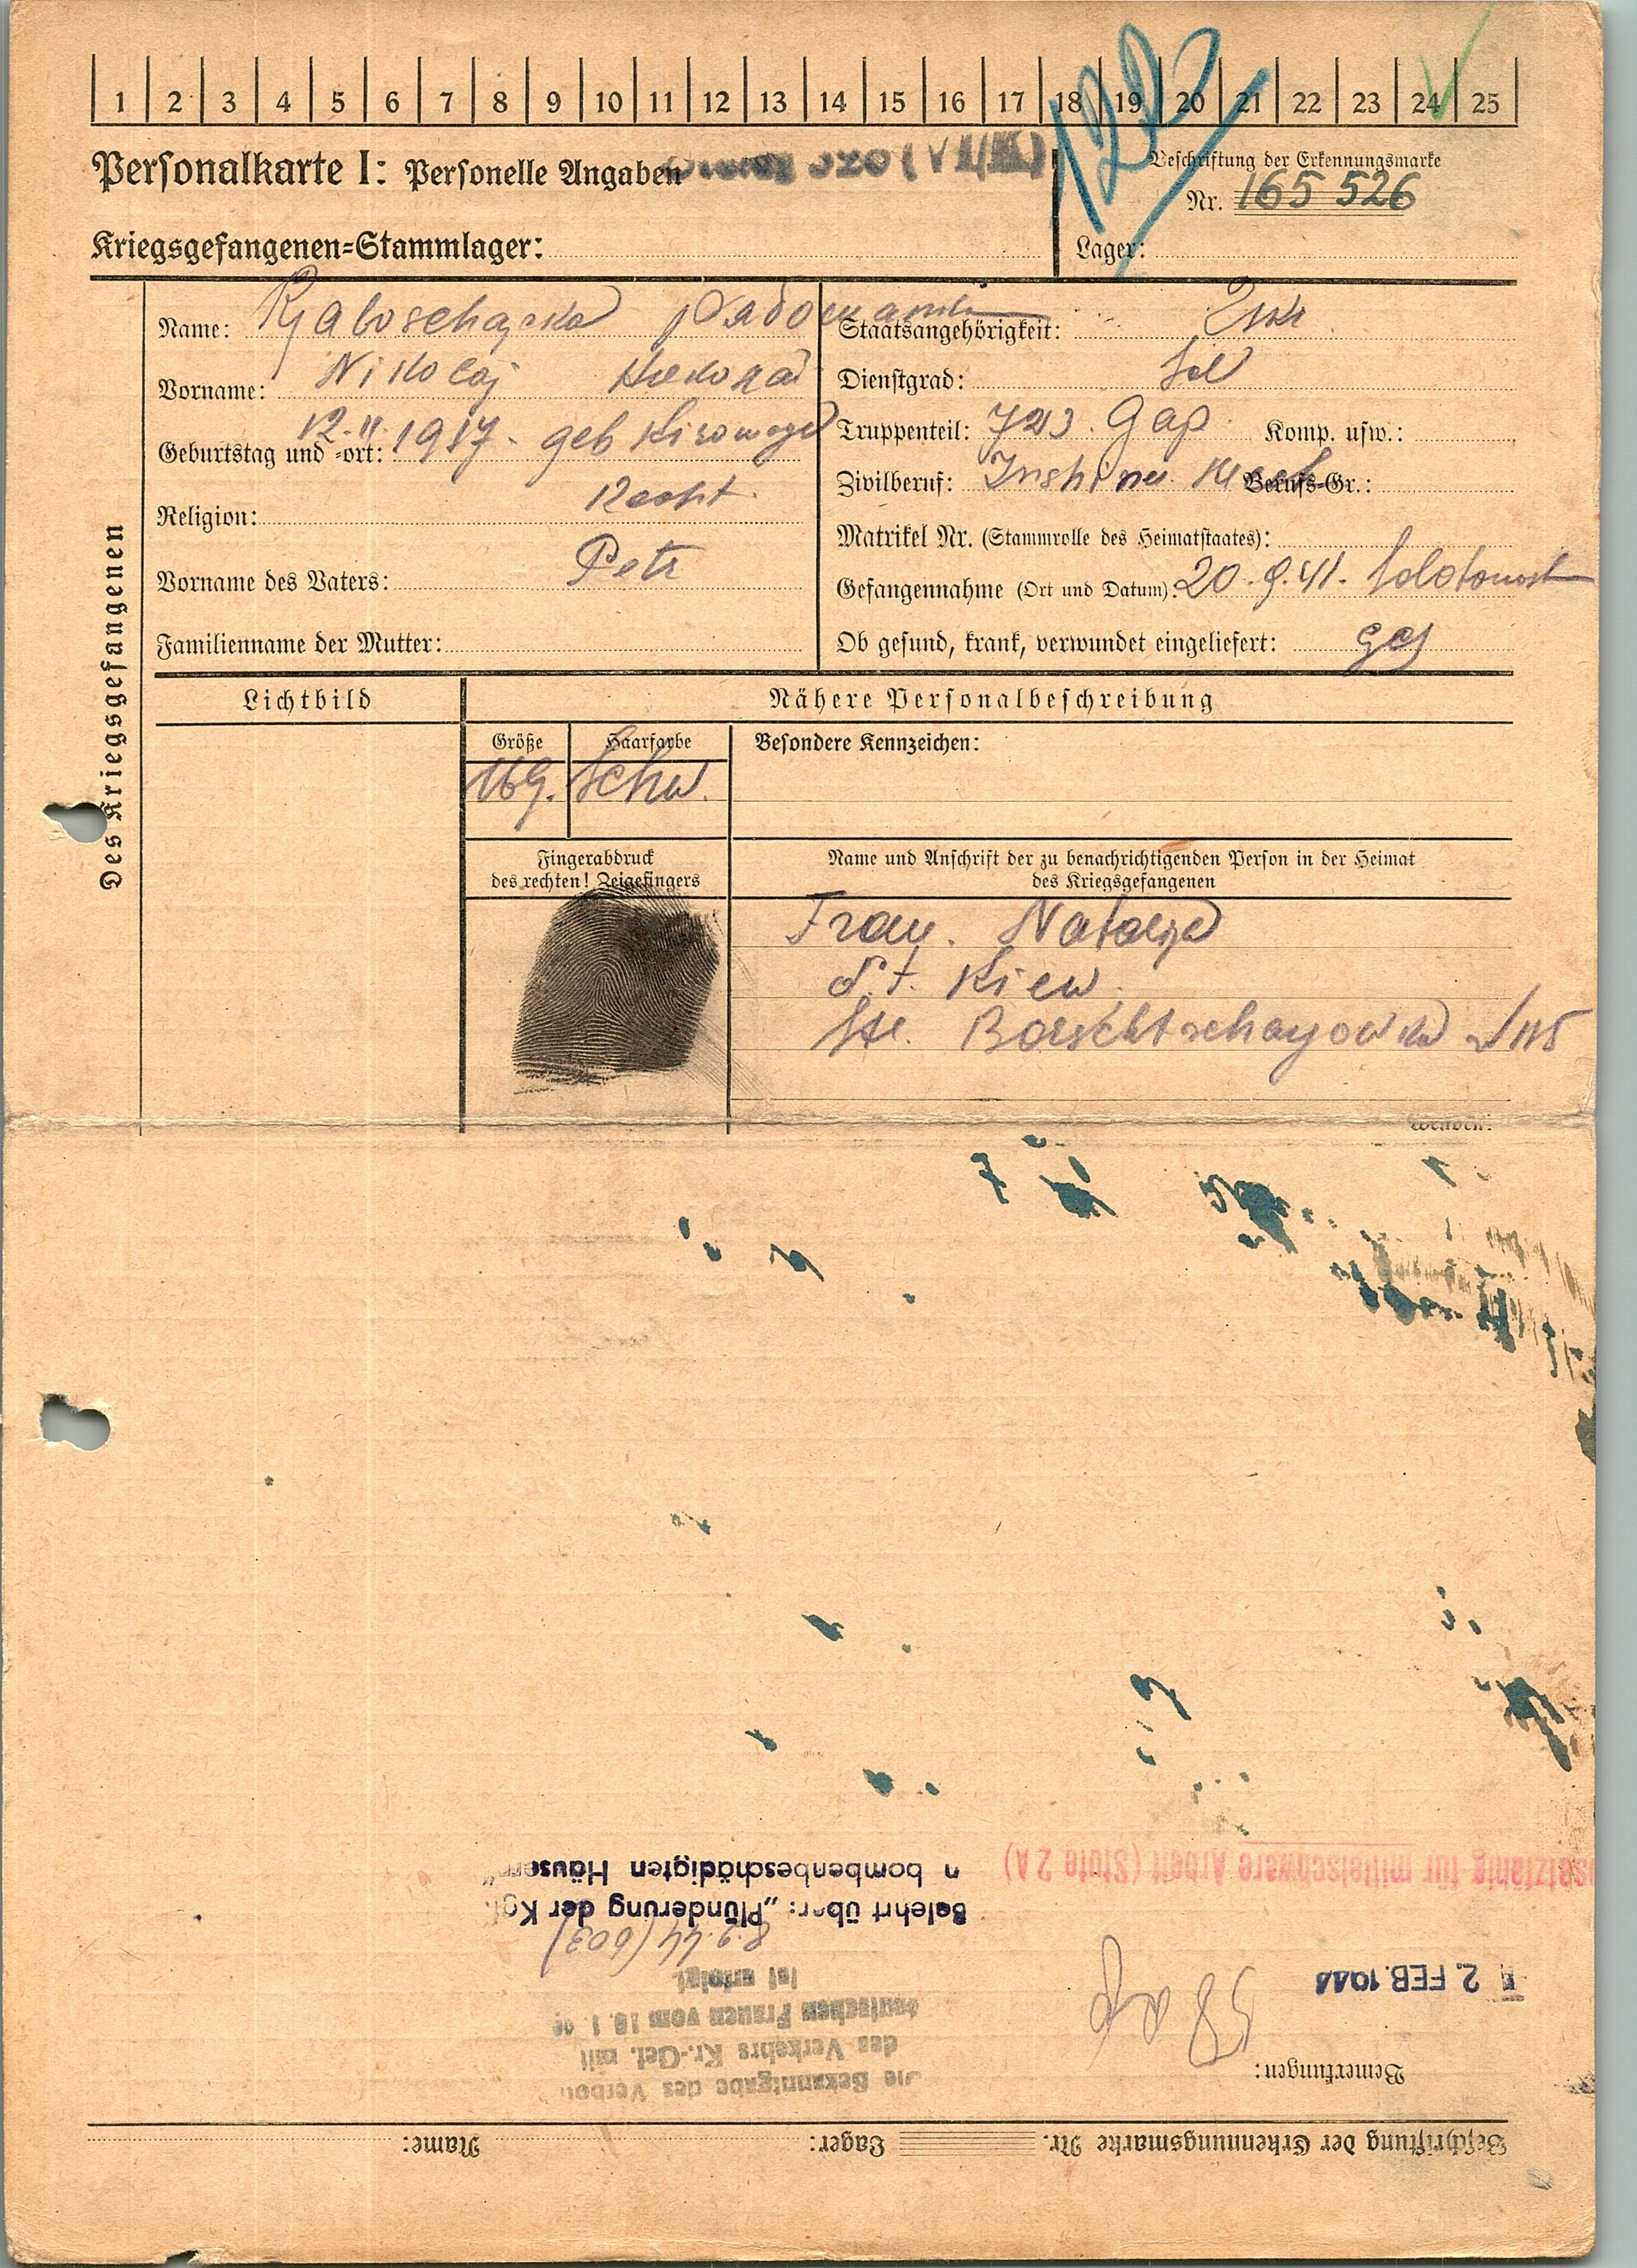 1 2 3 4 5 6 7 8 9 10 11 12 13 14 15 16 17 18 19 20 21 22 23 24 25
122
Personalkarte I: Personelle Angaben
Beschriftung der Erkennungsmarke
Nr. 165 526
Kriegsgefangenen-Stammlager:
Lager:
Des Kriegsgefangenen
Name:
Vorname: Nikolaj
Geburtstag und -ort: 12.11.1917. geb
Religion:
Vorname des Vaters: Petr
Familienname der Mutter:
Staatsangehörigkeit:
Dienstgrad: Sol
Truppenteil: 723. Gap Komp. usw.:
Zivilberuf: Berufs-Gr.:
Matrikel Nr. (Stammrolle des Heimatstaates):
Gefangennahme (Ort und Datum): 20.9.41.
Ob gesund, krank, verwundet eingeliefert: ges
Lichtbild
Nähere Personalbeschreibung
Größe
169.
Haarfarbe
schw.
Besondere Kennzeichen:
Fingerabdruck
des rechten! Zeigefingers
Name und Anschrift der zu benachrichtigenden Person in der Heimat
des Kriegsgefangenen
Frau. Natalja
St. Kiew
wenden!
Beschriftung der Erkennungsmarke Nr. Lager: Name:
Bemerkungen:
Die Bekanntgabe des Verbots
des Verkehrs Kr.-Gef. mit
deutschen Frauen vom
ist erfolgt
2. FEB. 1944
8.2.44 (603)
Belehrt über: „Plünderung der Kgf.
n bombenbeschädigten Häusern"
nsatzfähig für mittelschwere Arbeit (Stufe 2 A)